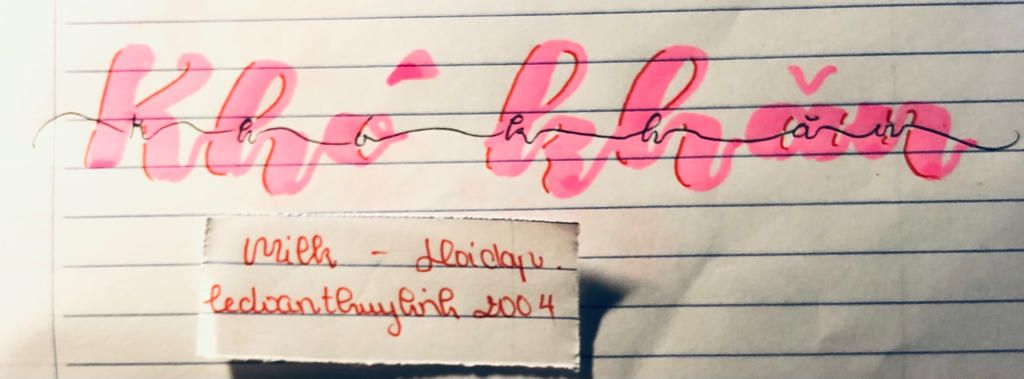 Khó khăn
Milk -
ledoanthuylinh 2004